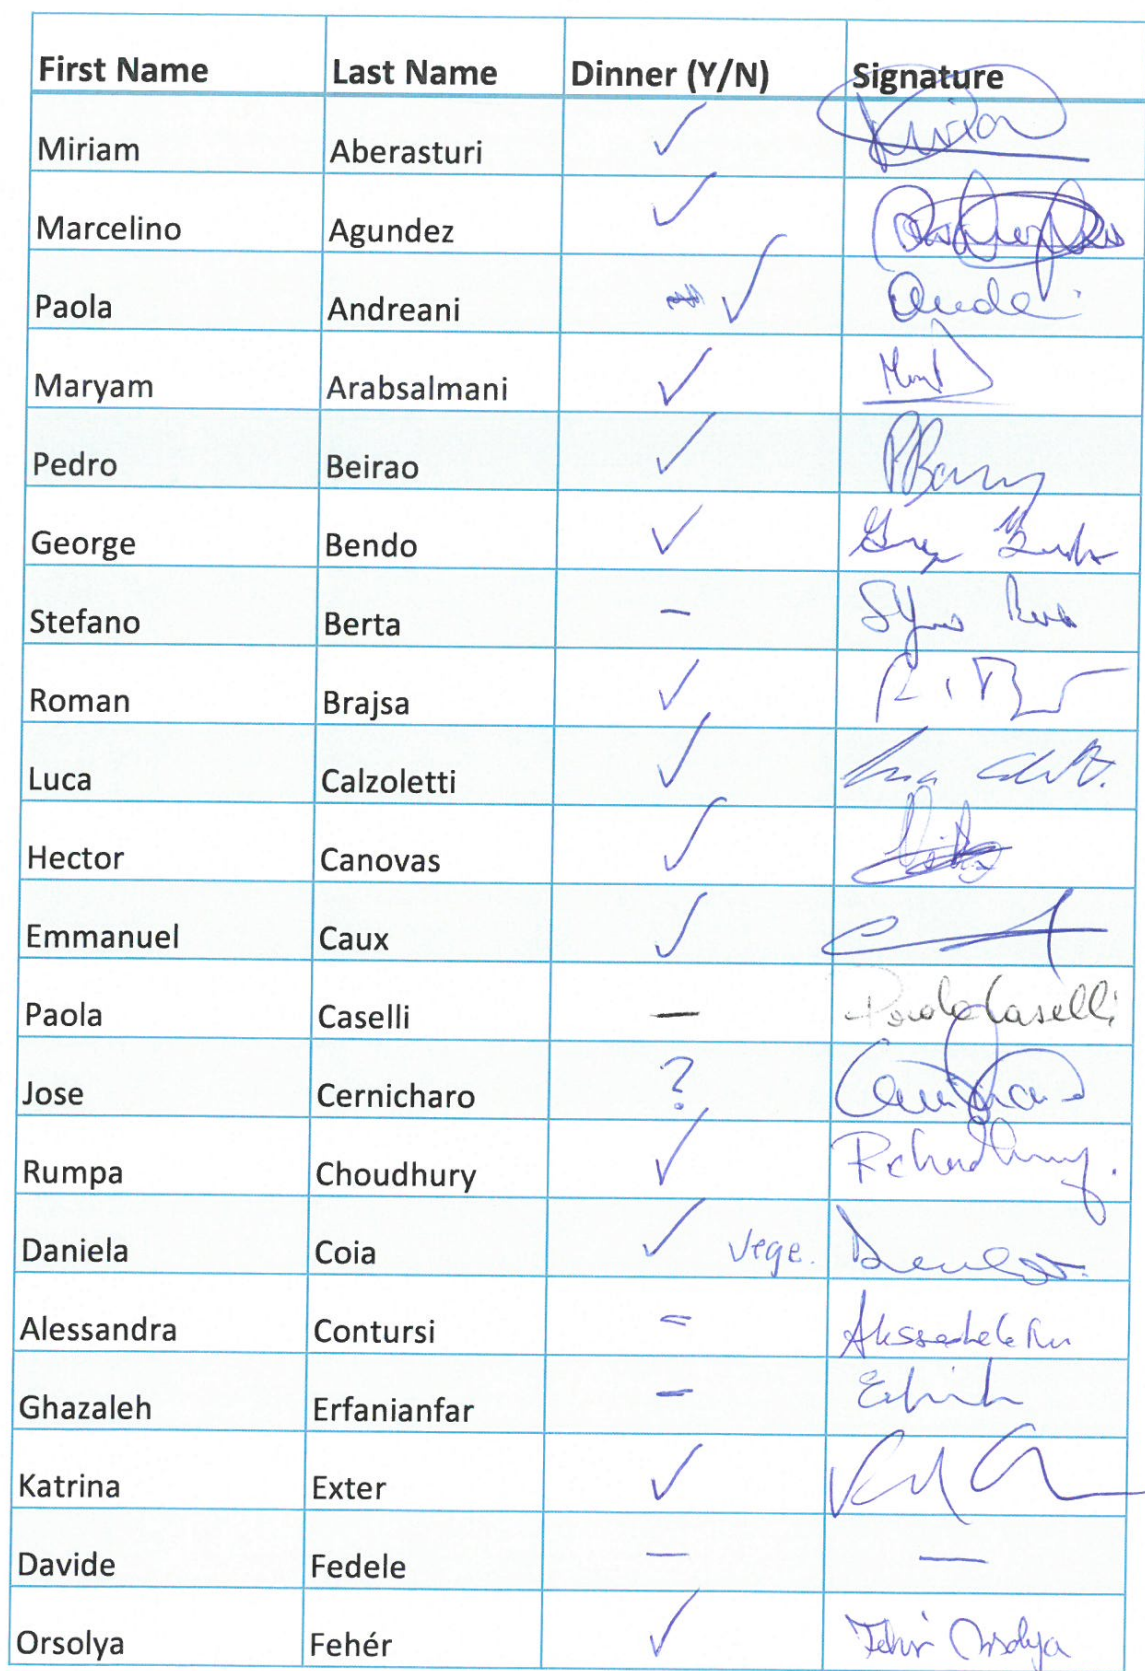 First Name Last Name Dinner (Y/N) Signature
Miriam Aberasturi ✓
Marcelino Agundez ✓
Paola Andreani ✓
Maryam Arabsalmani ✓
Pedro Beirao ✓
George Bendo ✓
Stefano Berta –
Roman Brajsa ✓
Luca Calzoletti ✓
Hector Canovas ✓
Emmanuel Caux ✓
Paola Caselli — Paola Caselli
Jose Cernicharo ?
Rumpa Choudhury ✓ RChoudhury.
Daniela Coia ✓ Vege.
Alessandra Contursi =
Ghazaleh Erfanianfar –
Katrina Exter ✓
Davide Fedele — —
Orsolya Fehér ✓ Fehér Orsolya